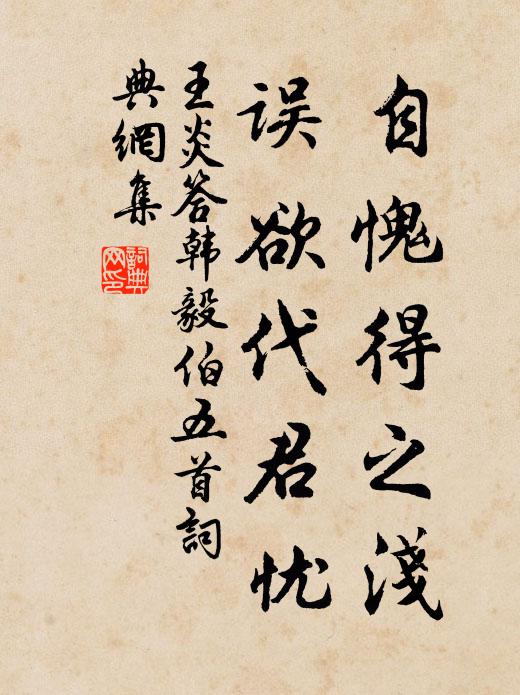 自愧得之淺
误欲代君忧
王炎答韩毅伯五首詞
典網集
詞典網印